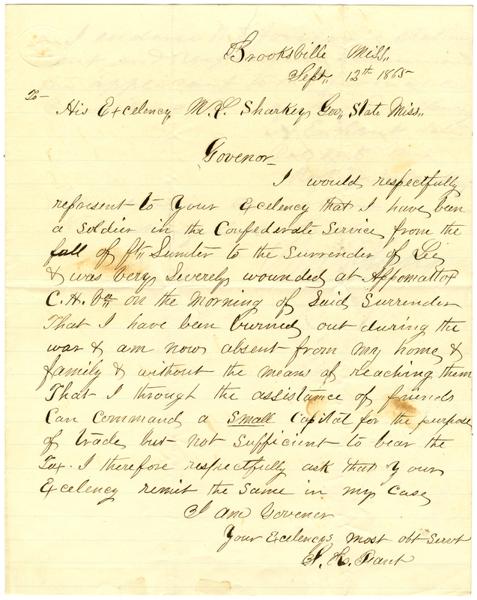 Brooksville Miss,,
Sept,, 12th 1865
To
His Excelency, W. L. Sharkey, Gov, State Miss,,
Govenor
I would respectfully
represent to Your Excelency that I have been
a soldier in the Confederate Service from the
fall of ft, Sumter to the Surrender of Lee,
& was very severely wounded at Appomattox
C. H. Va on the Morning of Said Surrender
That I have been burned out during the
war & am now absent from my home &
family & without the means of reaching them
That I through the assistance of friends
Can Command a Small Capital for the purpose
of trade but not Sufficient to bear the
Tax. I therefore respectfully ask that Your
Excelency remit the Same in my Case,
I am Govenor
Your Excelencys most obt Servt